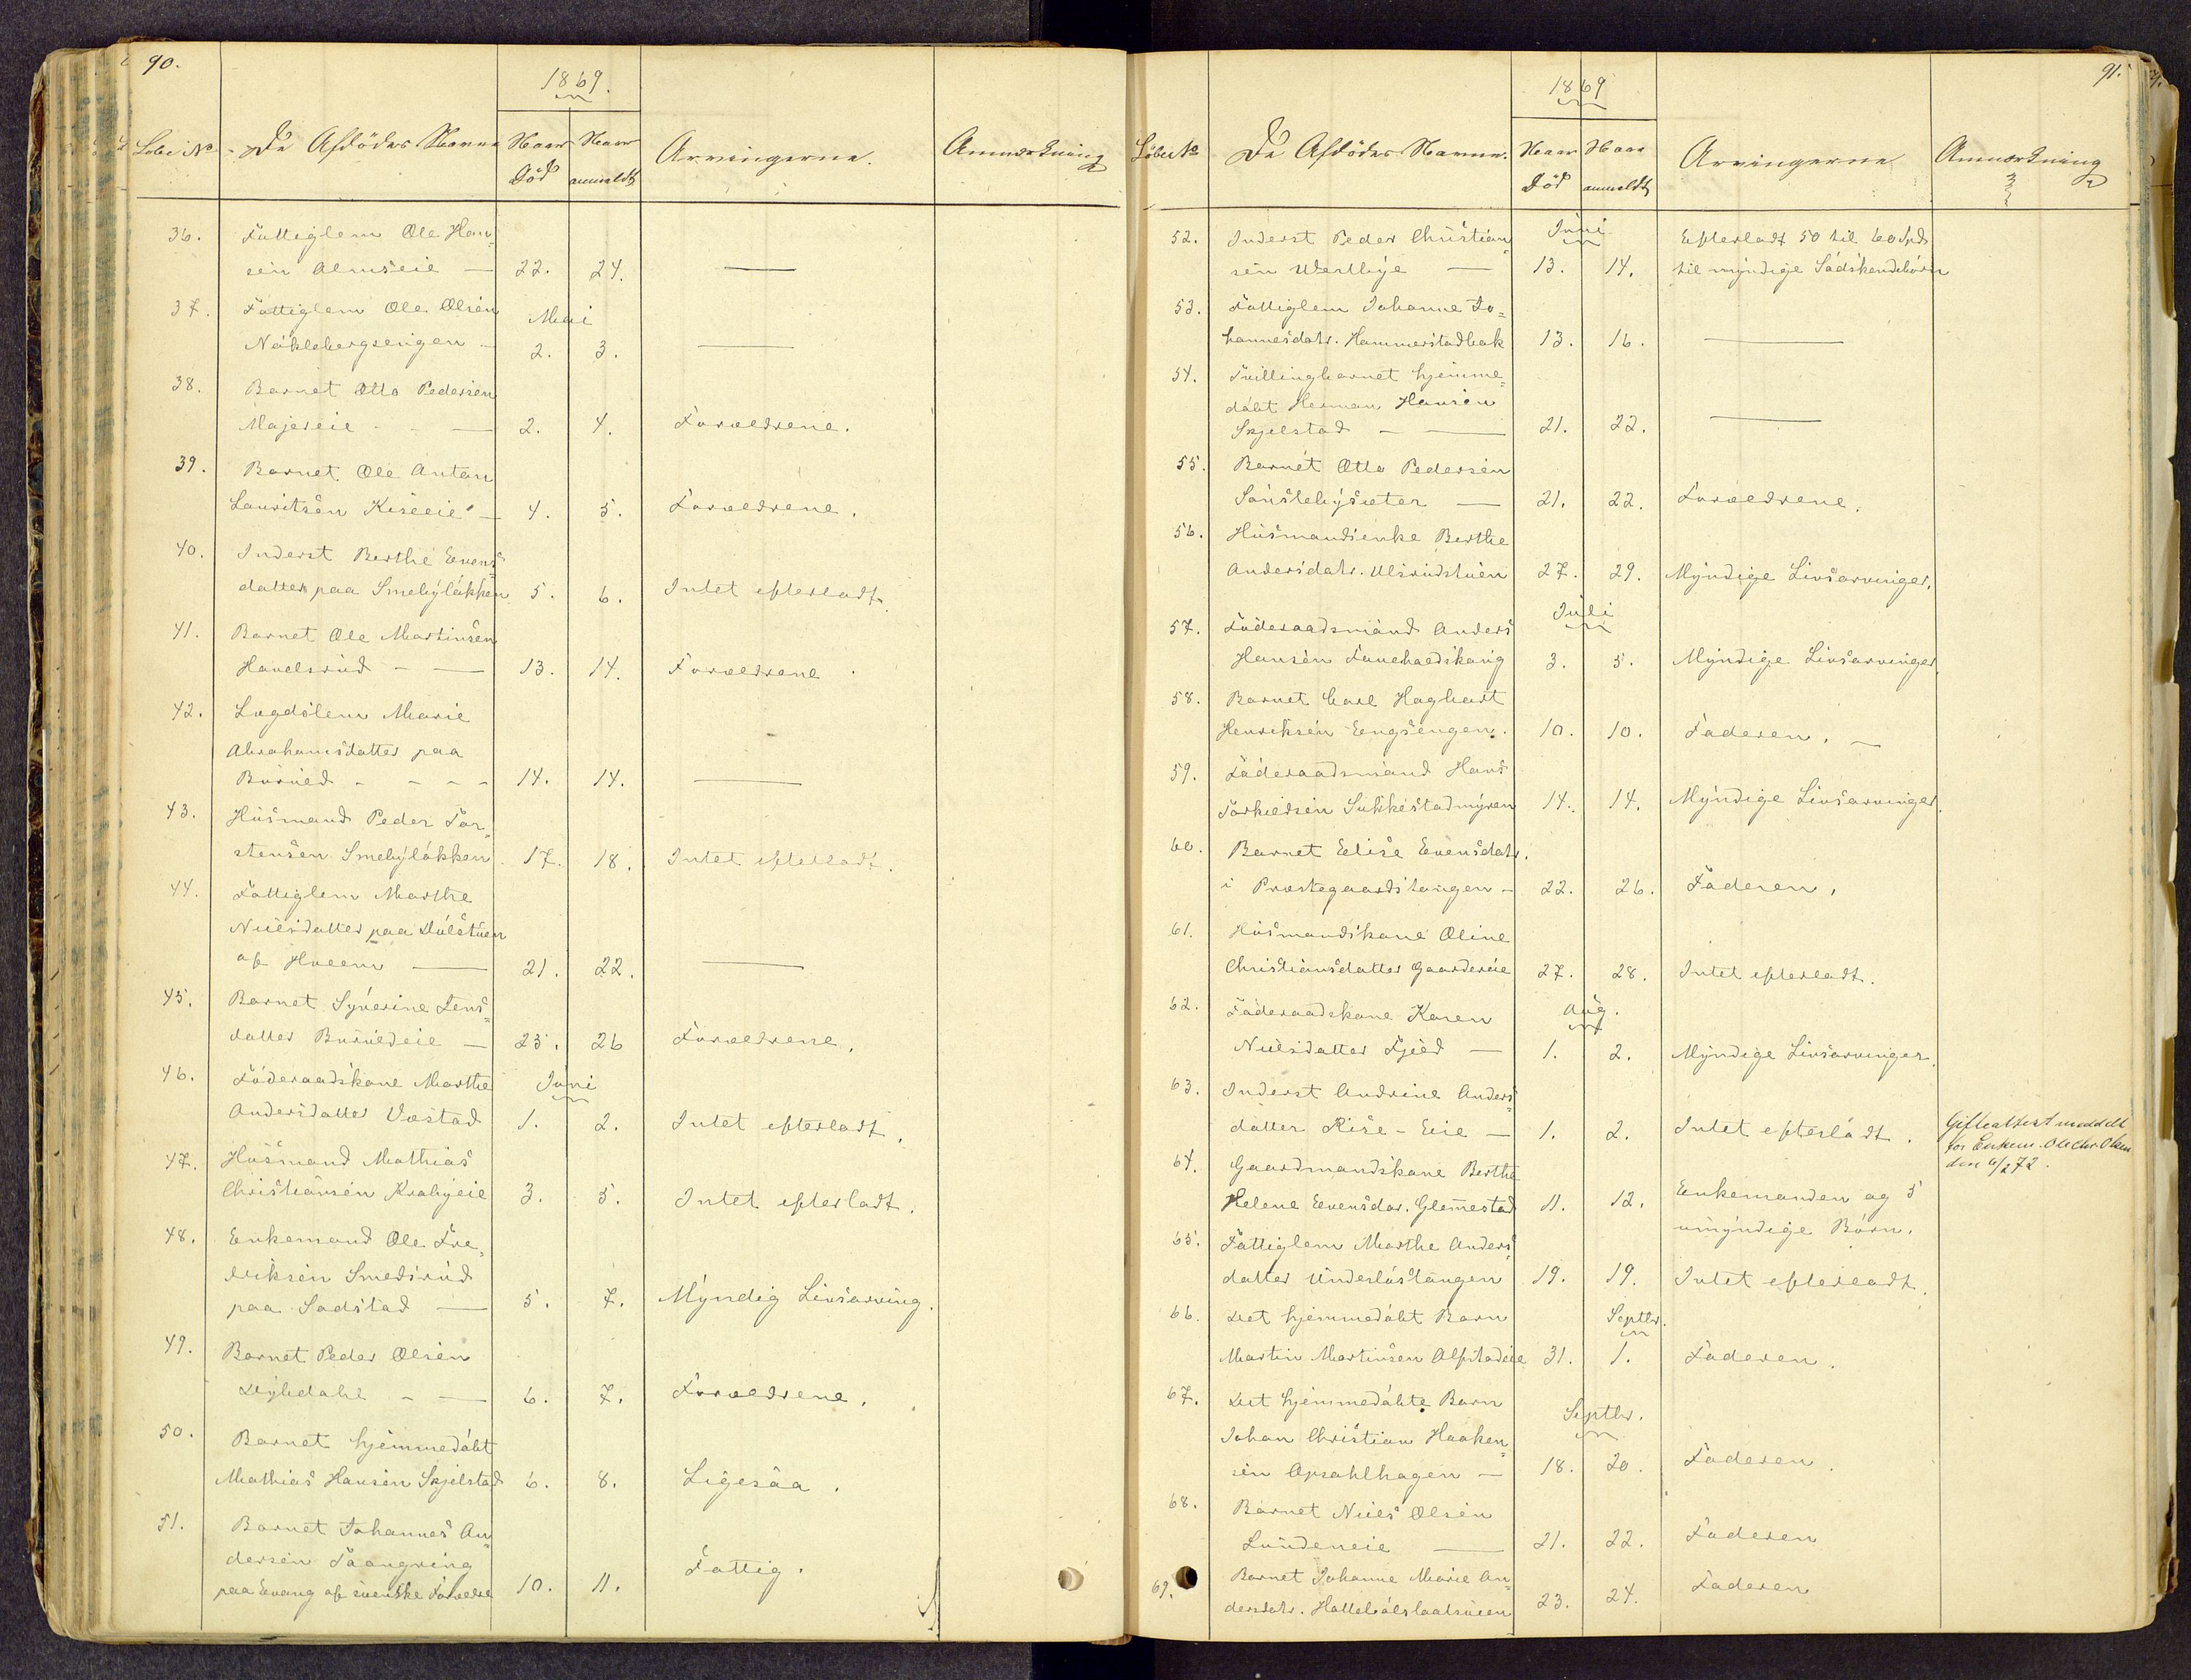 90.
1869.
Løbe No De Afdødes Navne Naar Død Naar anmeldt Arvingerne. Anmærkning
36. Fattiglem Ole Han-
sen Almseie — 22. 24. —
37. Fattiglem Ole Olsen Mai
Nøklebergsengen — 2. 3. —
38. Barnet Otto Pedersen
Majereie — 2. 4. Forældrene.
39. Barnet Ole Anton
Lauritsen Kiseeie — 4. 5. Forældrene.
40. Inderst Berthe Evens-
datter paa Smebyløkken 5. 6. Intet efterladt.
41. Barnet Ole Martinsen
Havelsrud — 13. 14. Forældrene.
42. Lægdslem Marie
Abrahamsdatter paa
Buruld - - - 14. 14. —
43. Husmand Peder Tor-
stensen Smebyløkken 17. 18. Intet efterladt.
44. Fattiglem Marthe
Nielsdatter paa Dúlstuen
af Hveem — 21. 22. —
45. Barnet Syverine Jens-
datter Buruldeie — 25. 26 Forældrene.
46. Föderaadskone Marthe Juni
Andersdatter Vestad 1. 2. Intet efterladt.
47. Husmand Mathias
Christiansen Krabyeie 3. 5. Intet efterladt.
48. Enkemand Ole Fre-
driksen Smedsrud
paa Sadstad — 5. 7. Myndig Livsarving.
49. Barnet Peder Olsen
Dybdahl - — 6. 7. Forældrene.
50. Barnet hjemmedøbt
Mathias Hansen Skjelstad 6. 8. Ligesaa.
51. Barnet Johannes An-
dersen Taangring
paa Evang af svenske Forældre 10. 11. Fattig.
91.
1869
Løbe No De Afdødes Navne. Naar Død Naar anmeldt Arvingerne Anmærkning
52. Inderst Peder Christian- Juni Efterladt 50 til 60 Spd
sen Westbye — 13. 14. til myndige Södskendebörn
53. Fattiglem Johanne Jo-
hannesdatr. Hammerstadbak 13. 16. —
54. Tvillingbarnet hjemme-
døbt Herman Hansen
Skjelstad — — 21. 22. —
55. Barnet Otto Pedersen
Sönstebysæter — 21. 22. Forældrene.
56. Husmandsenke Berthe
Andersdatr. Ulsrudstuen 27. 29. Myndige Livsarvinger.
Juli
57. Föderaadsmand Anders
Hansen Faneholdshaug 3. 5. Myndige Livsarvinger
58. Barnet Carl Hagbart
Henriksen Eengsengen. 10. 10. Faderen. —
59. Föderaadsmand Hans
Torkildsen Sukkestadmyren 14. 14. Myndige Livsarvinger.
60. Barnet Elise Evensdatr.
i Prestegaardstangen — 22. 26. Faderen.
61. Husmandskone Oline
Christiansdatter Gaardereie 27. 28. Intet efterladt.
62. Föderaadskone Karen Aug.
Nielsdatter Fjeld — 1. 2. Myndige Livsarvinger.
63. Inderst Andrine Anders-
datter Rise-Eie — 1. 2. Intet efterladt.
Gifteattest meddelt
for Enkem. Ole Chr. Olsen
den 6/2 72.
64. Gaardmandskone Berthe
Helene Evensdar. Glemestad 11. 12. Enkemanden og 5
umyndige Börn.
65. Fattiglem Marthe Anders-
datter Underlústangen 19. 19. Intet efterladt.
66. Det hjemmedøbt Barn Septbr.
Martin Martinsen Alfstadeie 31. 1. Faderen.
67. Det hjemmedøbte Barn
Septbr.
Johan Christian Haaken-
sen Opsahlhagen — 18. 20. Faderen.
68. Barnet Niels Olsen
Lundeneie — 21. 22. Faderen
69. Barnet Johanne Marie An-
dersdatr. 23. 24. Faderen